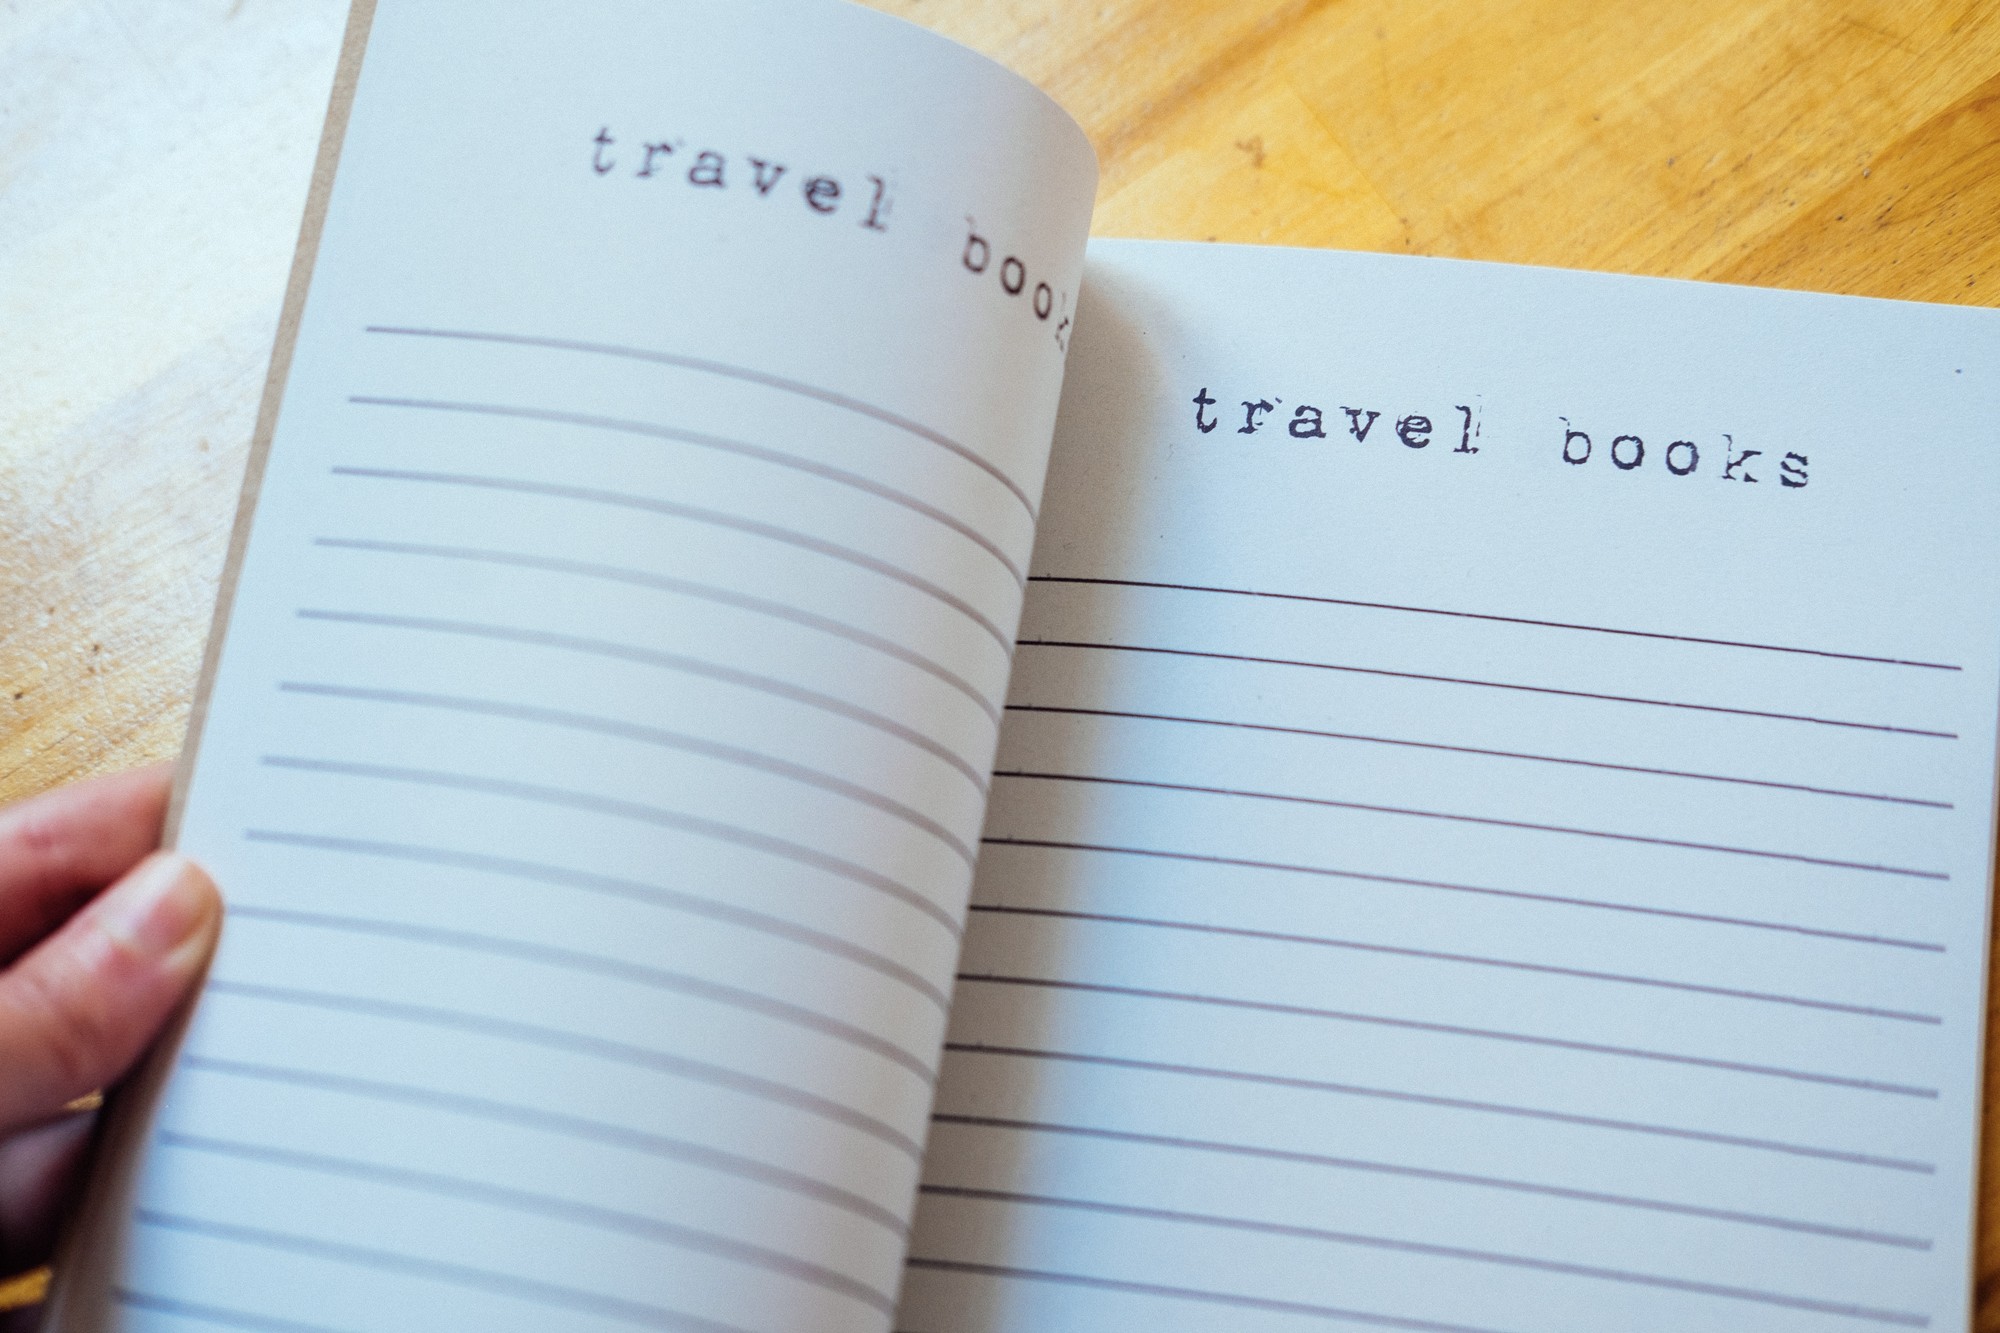 travel book
travel books